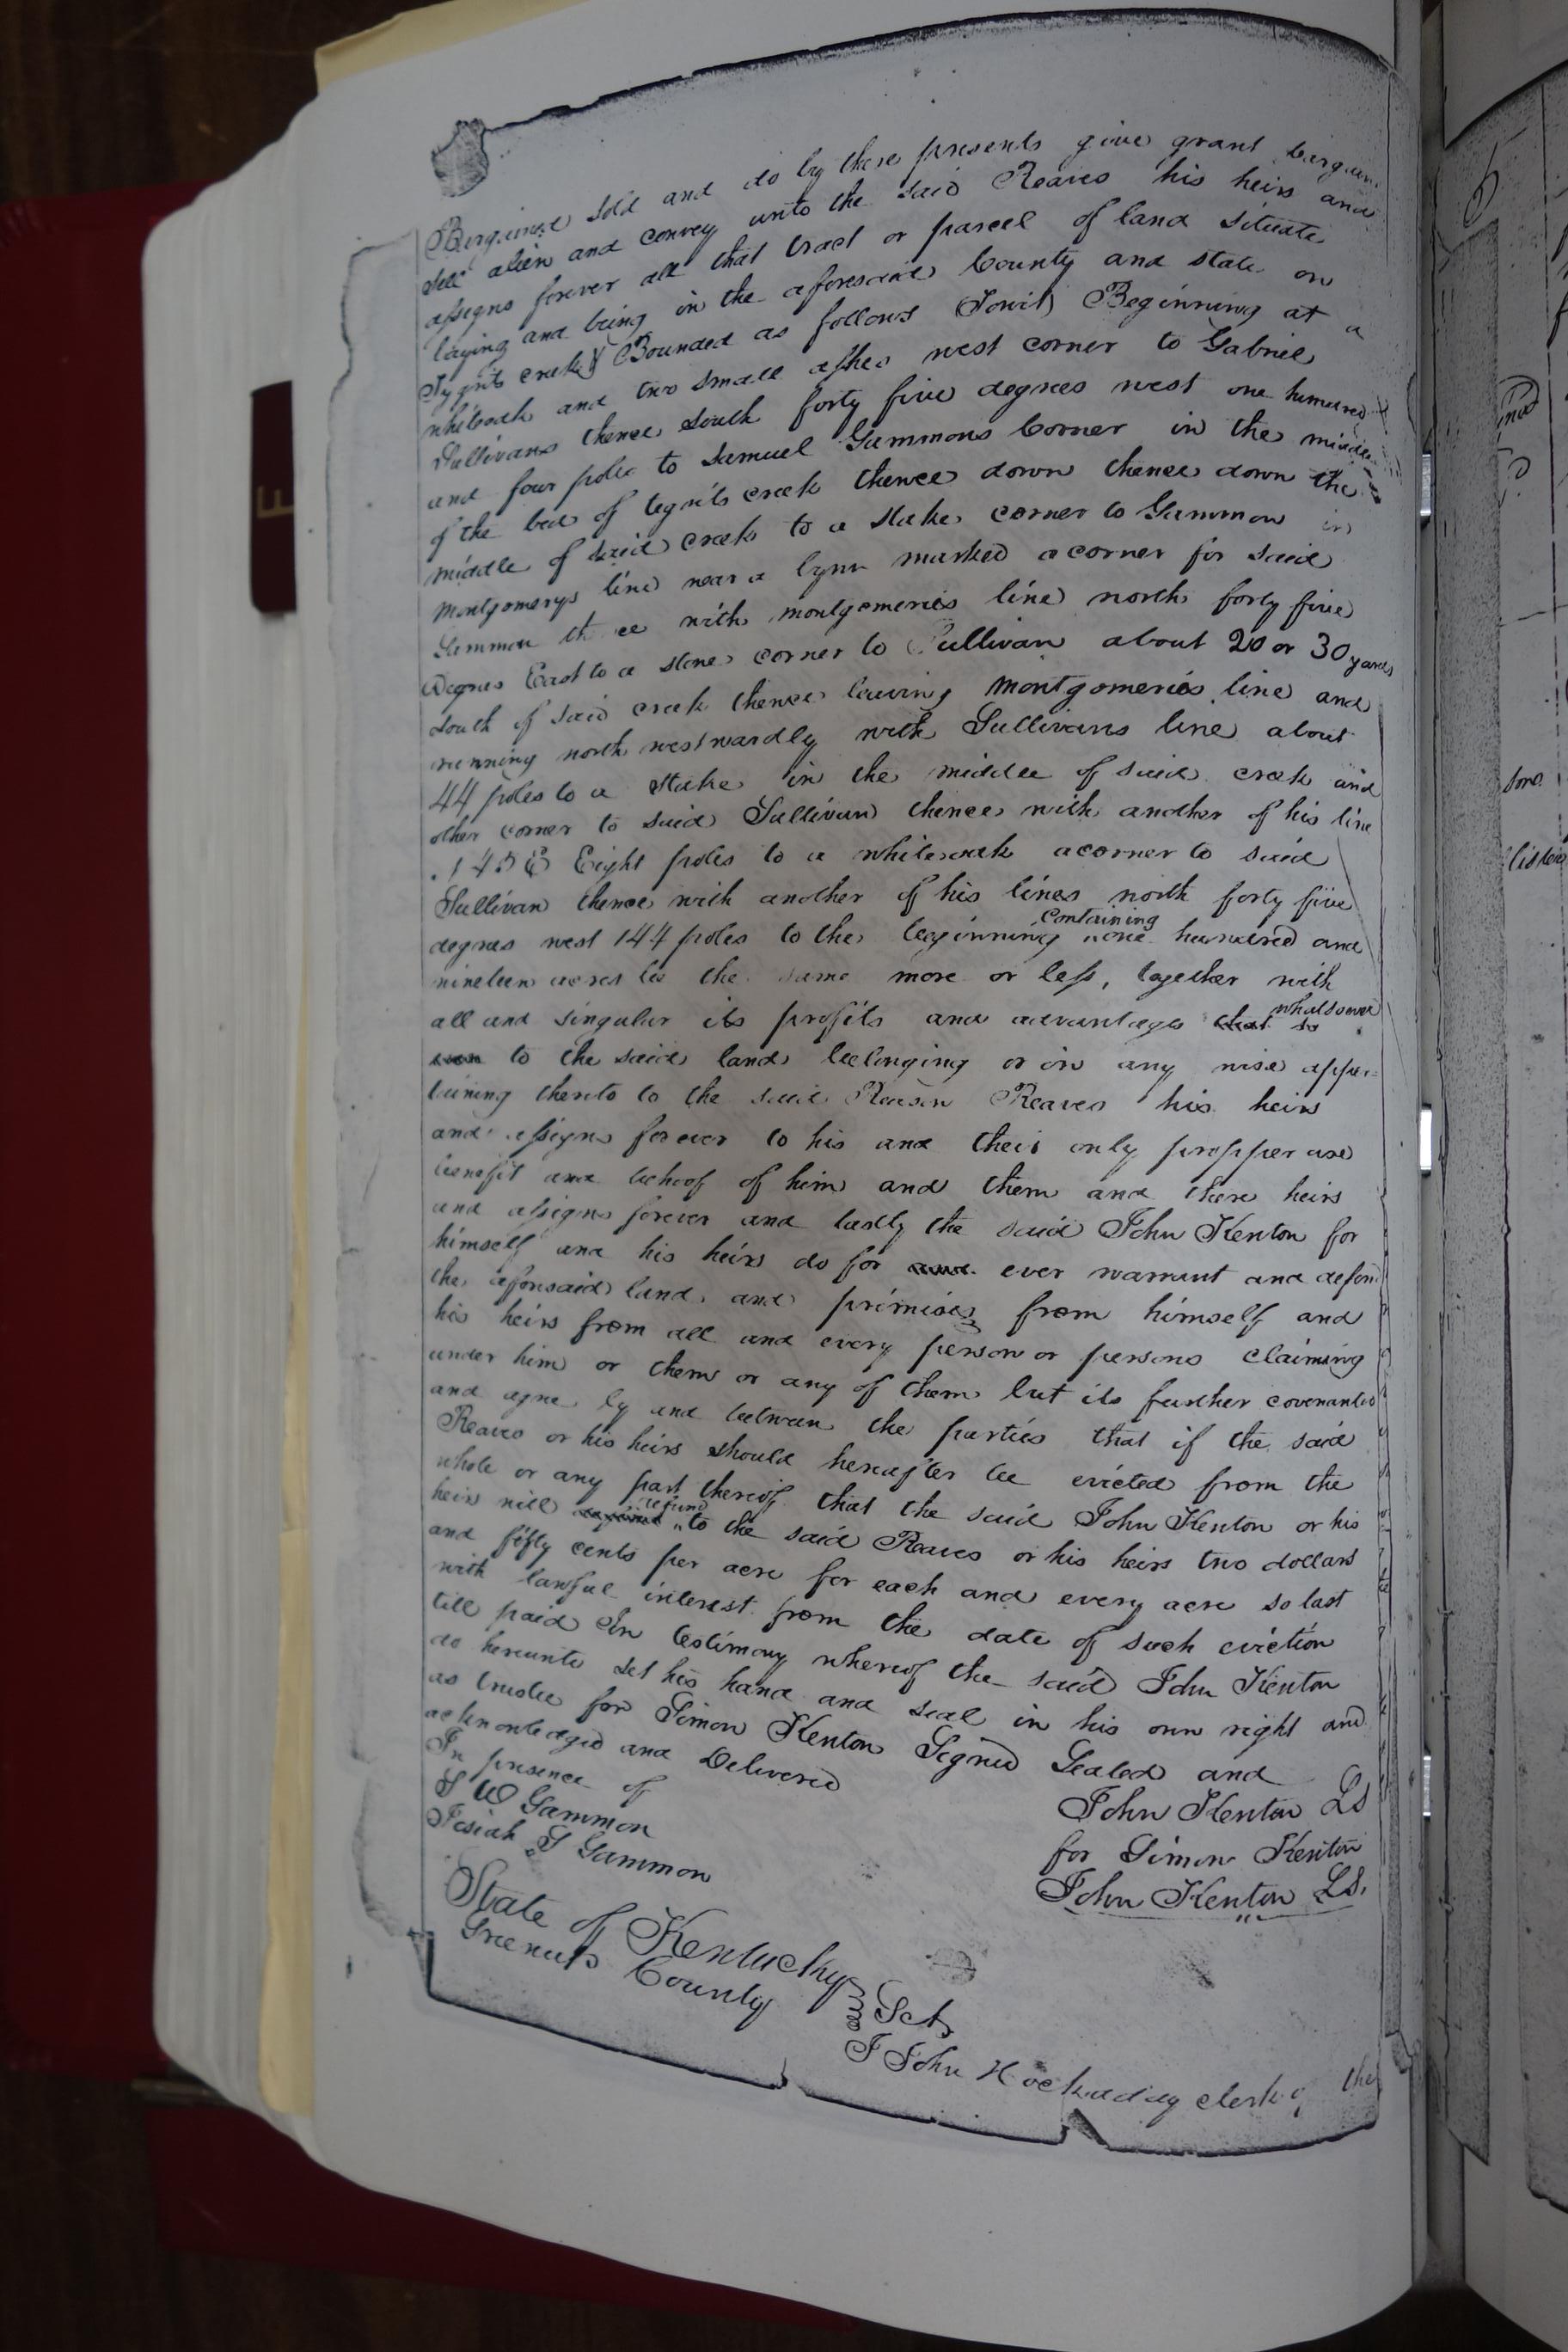 Bargained sold and do by these presents give grant bargain
sell alien and convey unto the said Reaves his heirs and
assigns forever all that tract or parcel of land situate
laying and being in the aforesaid County and state on
Tygerts creek & Bounded as follows (Towit) Beginning at a
whiteoak and two small ashes west corner to Gabriel
Sullivans thence south forty five degrees west one hundred
and four poles to Samuel Gammons Corner in the middle
of the bed of tygerts creek thence down thence down the
middle of said creek to a stake corner to Gammon in
montgomerys line near a lynn marked a corner for said
Gammon th ce with montgomeries line north forty five
degrees East to a stone corner to Sullivan about 20 or 30 yards
south of said creek thence leaving montgomeries line and
running north westwardly with Sullivans line about
44 poles to a stake in the middle of said creek and
other corner to said Sullivan thence with another of his line
45 E Eight poles to a whiteoak a corner to said
Sullivan thence with another of his lines north forty five
degrees west 144 poles to the beginning containing one hundred and
nineteen acres be the same more or less, together with
all and singular its profits and advantages that so whatsoever
to the said land belonging or in any wise apper=
taining thereto to the said Reason Reaves his heirs
and assigns forever to his and their only propper use
benefit and behoof of him and them and there heirs
and assigns forever and lastly the said John Kenton for
himself and his heirs do for ever warrant and defend
the aforesaid land and primises from himself and
his heirs from all and every person or persons claiming
under him or them or any of them but its further covenanted
and agree by and between the parties that if the said
Reaves or his heirs should hereafter be evicted from the
whole or any part thereof that the said John Kenton or his
heirs will refund to the said Reaves or his heirs two dollars
and fifty cents per acre for each and every acre so last
with lawful interest from the date of such eviction
till paid In testimony whereof the said John Kenton
do hereunto set his hand and seal in his own right and
as trustee for Simon Kenton Signed Sealed and
acknowledged and Delivered
In presence of
S W Gammon
Josiah S Gammon
John Kenton LS
for Simon Kenton
John Kenton LS.
State of Kentucky
Greenup County Sct
I John Hockaday clerk of the
E